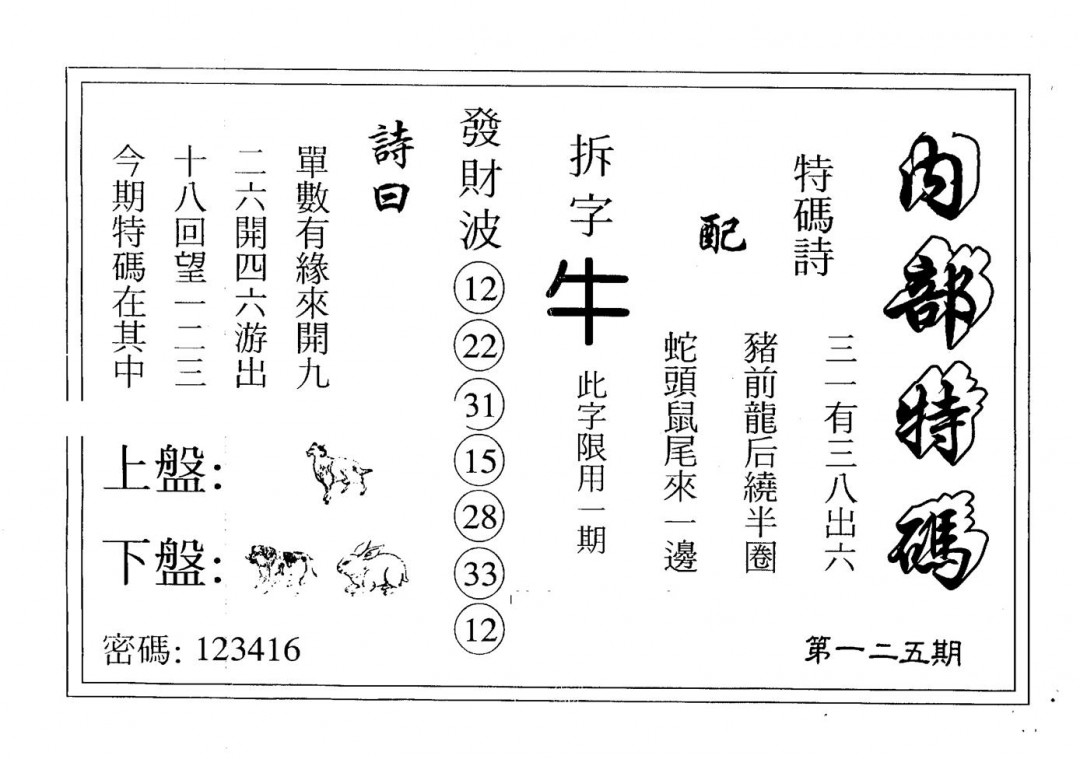 內部特碼
第一二五期
特碼詩
三一有三八出六
配
豬前龍后繞半圈
蛇頭鼠尾來一邊
拆字
牛
此字限用一期
發財波
12
22
31
15
28
33
12
詩曰
單數有緣來開九
二六開四六游出
十八回望一二三
今期特碼在其中
上盤:
下盤:
密碼: 123416